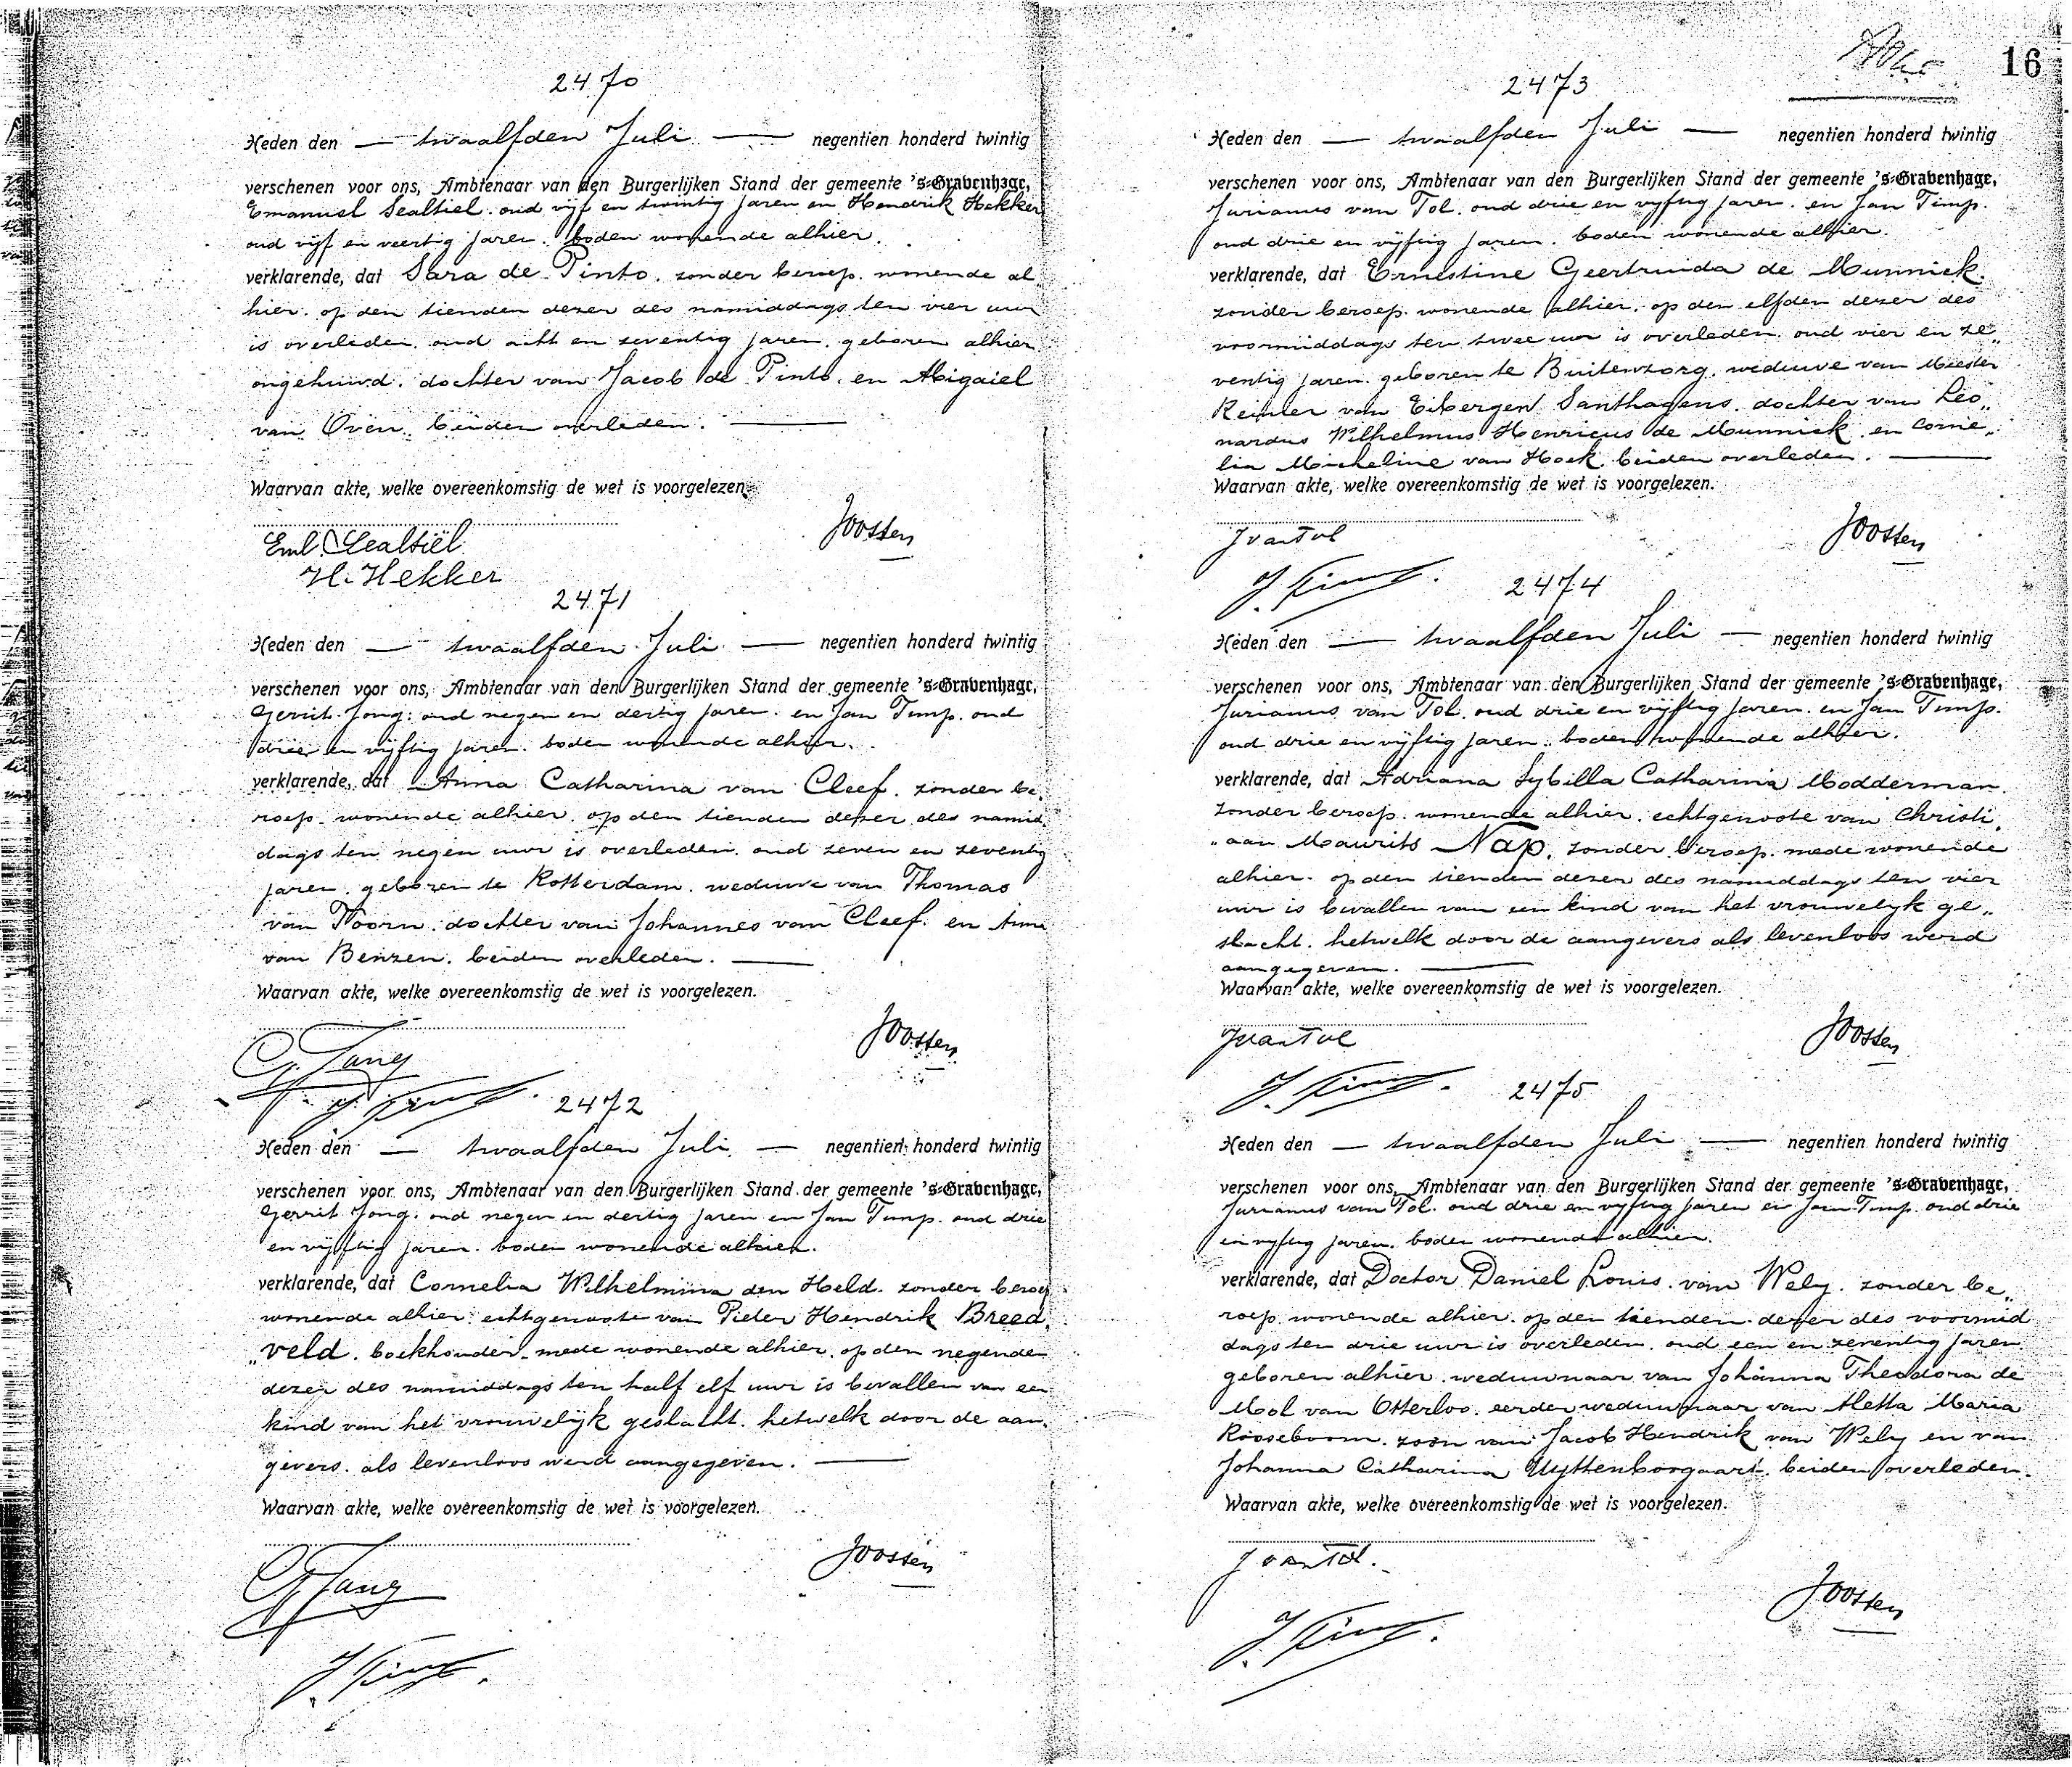 2470
Heden den — twaalfden Juli — negentien honderd twintig
verschenen voor ons, Ambtenaar van den Burgerlijken Stand der gemeente 's-Gravenhage,
Emanuel Sealtiel. oud vijf en twintig jaren en Hendrik Hekker
oud vijf en veertig jaren. boden wonende alhier.
verklarende, dat Sara de Pinto. zonder beroep. wonende al„
hier. op den tienden dezer des namiddags ten vier uur
is overleden. oud acht en zeventig jaren. geboren alhier
ongehuwd. dochter van Jacob de Pinto. en Abigaiel
van Oven. beiden overleden. —
Waarvan akte, welke overeenkomstig de wet is voorgelezen.
Eml. Sealtiël
Joosten
H. Hekker
2471
Heden den — twaalfden Juli — negentien honderd twintig
verschenen voor ons, Ambtenaar van den Burgerlijken Stand der gemeente 's-Gravenhage,
Gerrit Jong. oud negen en dertig jaren. en Jan Timp. oud
drie en vijftig jaren. boden wonende alhier.
verklarende, dat Anna Catharina van Cleef. zonder be„
roep. wonende alhier. op den tienden dezer des namid„
dags ten negen uur is overleden. oud zeven en zeventig
jaren. geboren te Rotterdam. weduwe van Thomas
van Noorn. dochter van Johannes van Cleef. en Anna
van Benzen. beiden overleden. —
Waarvan akte, welke overeenkomstig de wet is voorgelezen.
G. Jong
Joosten
J. Timp.
2472
Heden den — twaalfden Juli. — negentien honderd twintig
verschenen voor ons, Ambtenaar van den Burgerlijken Stand der gemeente 's-Gravenhage,
Gerrit Jong. oud negen en dertig jaren en Jan Timp. oud drie
en vijftig jaren. boden wonende alhier.
verklarende, dat Cornelia Wilhelmina den Held. zonder beroep
wonende alhier. echtgenoote van Pieter Hendrik Breed„
„veld. boekhouder. mede wonende alhier. op den negenden
dezer des namiddags ten half elf uur is bevallen van een
kind van het vrouwelijk geslacht. hetwelk door de aan„
gevers. als levenloos werd aangegeven. —
Waarvan akte, welke overeenkomstig de wet is voorgelezen.
G. Jong
Joosten
J. Timp.
16
2473
Heden den — twaalfden Juli — negentien honderd twintig
verschenen voor ons, Ambtenaar van den Burgerlijken Stand der gemeente 's-Gravenhage,
Jurianus van Tol. oud drie en vijftig jaren. en Jan Timp.
oud drie en vijftig jaren. boden wonende alhier.
verklarende, dat Ernestine Geertruida de Munnick.
zonder beroep. wonende alhier. op den elfden dezer des
voormiddags ten twee uur is overleden. oud vier en ze„
ventig jaren. geboren te Buitenzorg. weduwe van Meester
Reinier van Eibergen Santhagens. dochter van Leo„
nardus Wilhelmus Henricus de Munnick. en Corne„
lia Micheline van Hoek. beiden overleden. —
Waarvan akte, welke overeenkomstig de wet is voorgelezen.
J van Tol
Joosten
J. Timp.
2474
Heden den — twaalfden Juli — negentien honderd twintig
verschenen voor ons, Ambtenaar van den Burgerlijken Stand der gemeente 's-Gravenhage,
Jurianus van Tol. oud drie en vijftig jaren. en Jan Timp.
oud drie en vijftig jaren. boden wonende alhier.
verklarende, dat Adriana Sybilla Catharina Modderman.
zonder beroep. wonende alhier. echtgenoote van Christi„
„aan Maurits Nap. zonder beroep. mede wonende
alhier. op den tienden dezer des namiddags ten vier
uur is bevallen van een kind van het vrouwelijk ge„
slacht. hetwelk door de aangevers als levenloos werd
aangegeven. —
Waarvan akte, welke overeenkomstig de wet is voorgelezen.
J van Tol
Joosten
J. Timp.
2475
Heden den — twaalfden Juli — negentien honderd twintig
verschenen voor ons, Ambtenaar van den Burgerlijken Stand der gemeente 's-Gravenhage,
Jurianus van Tol. oud drie en vijftig jaren en Jan Timp. oud drie
en vijftig jaren. boden wonende alhier.
verklarende, dat Doctor Daniel Louis. van Wely. zonder be„
roep. wonende alhier. op den tienden dezer des voormid
dags ten drie uur is overleden. oud een en zeventig jaren
geboren alhier. weduwnaar van Johanna Theodora de
Mol van Otterloo. eerder weduwnaar van Aletta Maria
Rooseboom. zoon van Jacob Hendrik van Wely en van
Johanna Catharina Uyttenboogaart. beiden overleden.
Waarvan akte, welke overeenkomstig de wet is voorgelezen.
J van Tol.
Joosten
J. Timp.